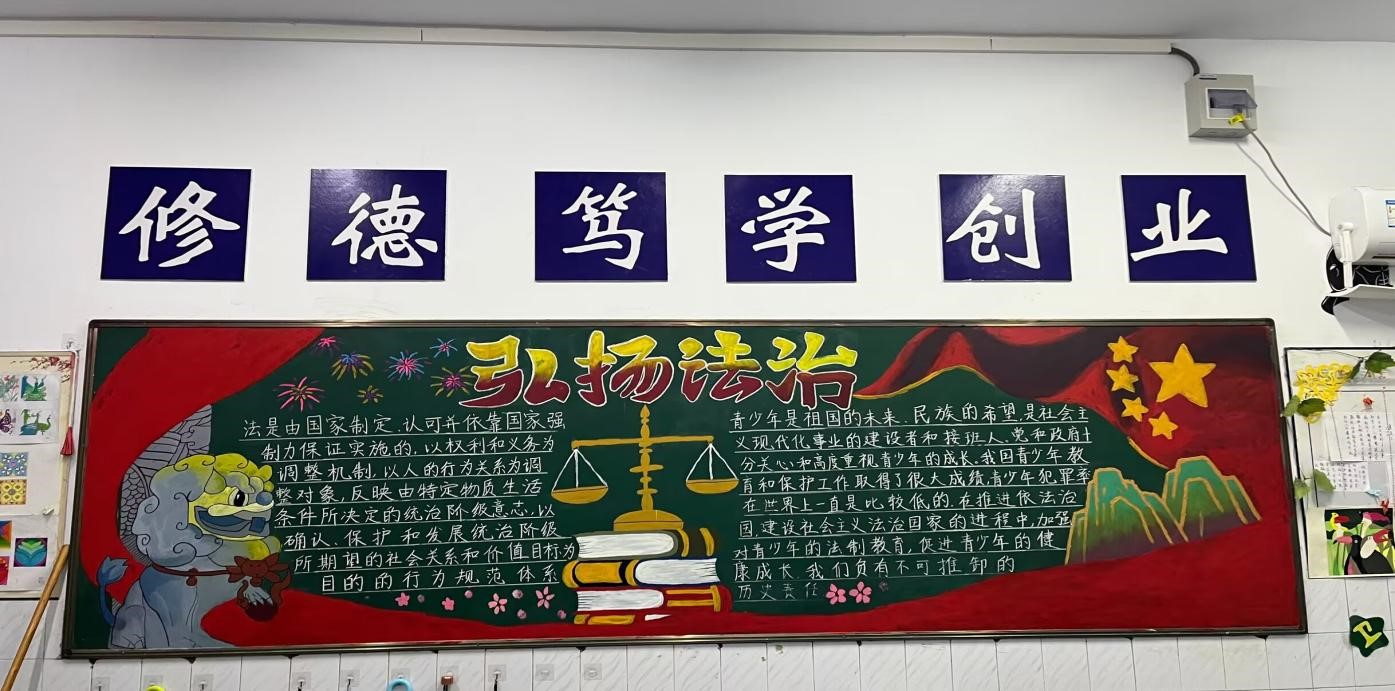 修德笃学创业
弘扬法治
法是由国家制定、认可并依靠国家强
制力保证实施的，以权利和义务为
调整机制，以人的行为关系为调
整对象，反映由特定物质生活
条件所决定的统治阶级意志，以
确认、保护和发展统治阶级
所期望的社会关系和价值目标为
目的的行为规范体系
青少年是祖国的未来、民族的希望，是社会主
义现代化事业的建设者和接班人。党和政府十
分关心和高度重视青少年的成长。我国青少年教
育和保护工作取得了很大成绩，青少年犯罪率
在世界上一直是比较低的。在推进依法治
国建设社会主义法治国家的进程中，加强
对青少年的法制教育，促进青少年的健
康成长，我们负有不可推卸的
历史责任